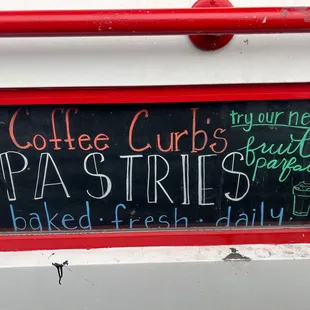 Coffee Curb's
PASTRIES
baked · fresh · daily
try our ne
fruit
parfa